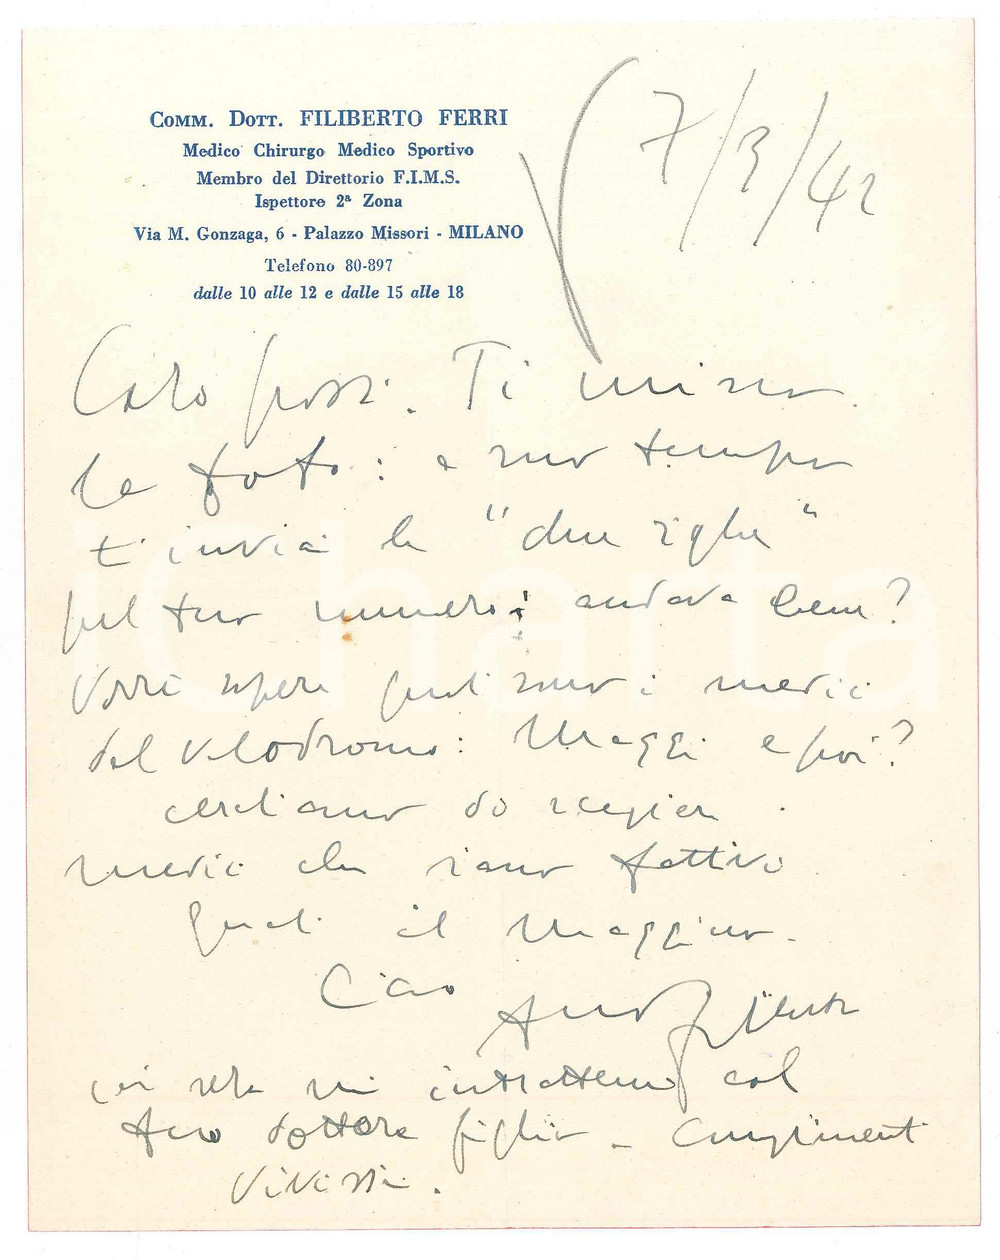 COMM. DOTT. FILIBERTO FERRI
Medico Chirurgo Medico Sportivo
Membro del Direttorio F.I.M.S.
Ispettore 2ª Zona
Via M. Gonzaga, 6 - Palazzo Missori - MILANO
Telefono 80-897
dalle 10 alle 12 e dalle 15 alle 18
7/3/42
Caro . Ti unisco
le foto: a suo tempo
t'inviai le "due righe"
pel tuo numero: andava bene?
Vorrei sapere quali sono i medici
del Velodromo: Maggi e poi?
cerchiamo di scegliere
medici che siano fattivi
quali il Maggi
Ciao
tuo Filiberto
ieri sera mi intrattenni col
tuo dottore figlio - complimenti
vivissimi.
iCharta